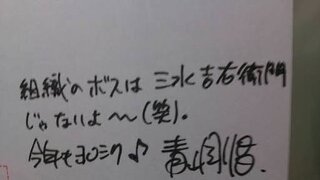 組織のボスは 三水吉右衛門
じゃないよ〜〜(笑)。
今年もヨロシク♪ 青山剛昌.